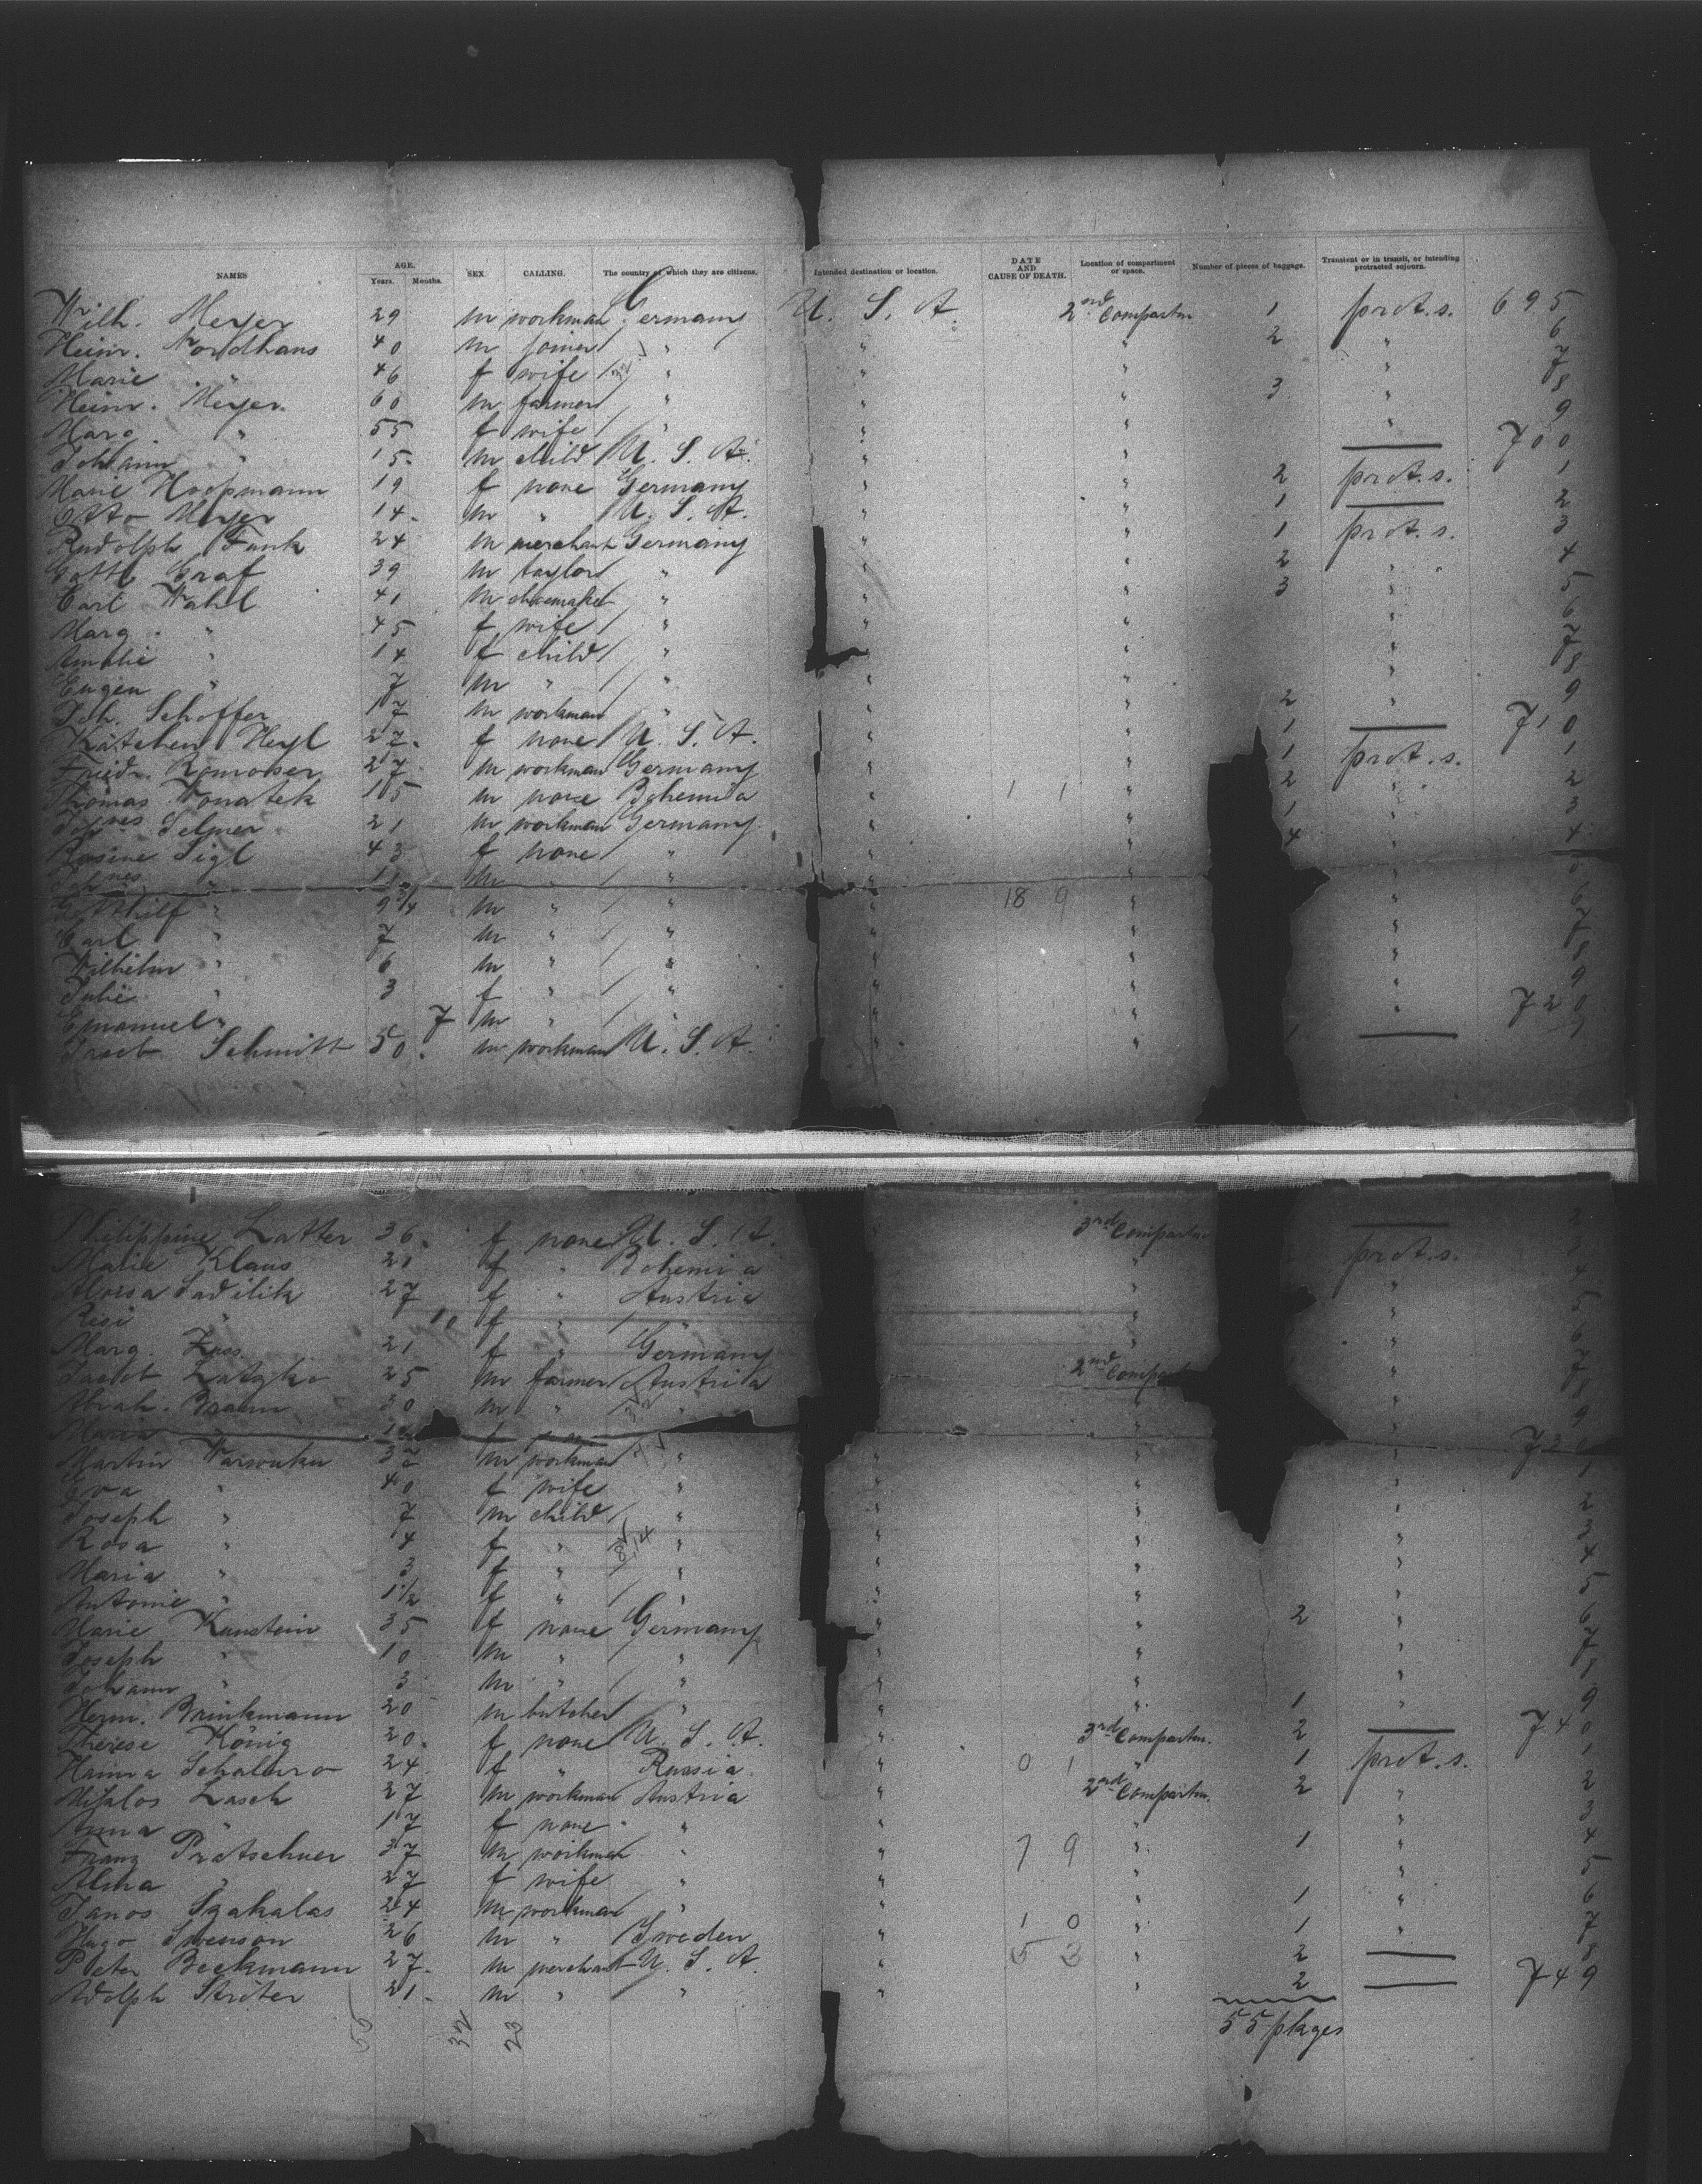 NAMES AGE. Years. Months. SEX. CALLING. The country of which they are citizens. Intended destination or location. DATE AND CAUSE OF DEATH. Location of compartment or space. Number of pieces of baggage. Transient or in transit, or intending protracted sojourn.
Wilh. Meyer 29 m workman Germany U. S. A. 2nd Compartm. 1 prot. s. 695
Heinr. Nordhaus 40 m joiner " " " 2 " 6
Marie " 46 f wife " " " " 7
Heinr. Meyer 60 m farmer " " " 3 " 8
Marg. " 55 f wife " " " " 9
Johann " 15 m child U. S. A. " " — 700
Marie Hoopmann 19 f none Germany " " 2 prot. s. 1
Otto Meyer 14 m " U. S. A. " " 1 — 2
Rudolph Funk 24 m merchant Germany " " 1 prot. s. 3
Gottl Graf 39 m taylor " " " 2 " 4
Carl Wahl 41 m shoemaker " " " 3 " 5
Marg. " 45 f wife " " " " 6
Amalie " 14 f child " " " " 7
Eugen " 7 m " " " " " 8
Joh. Schoffer 17 m workman " " " 2 " 9
Kätchen Heyl 27 f none U. S. A. " " 1 — 710
Friedr. Romoser 27 m workman Germany " " 1 prot. s. 1
Thomas Wonatek 15 m none Bohemia " 1 1 " 2 " 2
Johnes Selmer 21 m workman Germany " " 1 " 3
Rosine Sigl 43 f none " " " 4 " 4
Johnes " 11 m " " " " "
Gotthilf " 9 3/4 m " " " 18 9 " " 6
Carl " 7 m " " " " " 7
Wilhelm " 6 m " " " " " 8
Julie " 3 f " " " " " 9
Emanuel " 7 m " " " " " 720
Schmitt 50 m workman U. S. A. " " —
Philippine Latter 36 f none U. S. A. " 3rd Compartm. —
Malie Klaus 21 f " Bohemia " prot. s.
Aloisa Sadilik 27 f " Austria " "
Resi " 10 f " " " "
Marg. 21 f " Germany " " 6
Jacob Latzko 25 m farmer Austria 2nd Compart " 7
Abrah. Braun 30 m " " " 8
Maria f " 9
Martin 32 m workman " " " " 730
Eva " 40 f wife " " " " 1
Joseph " 7 m child " " " " 2
Rosa " 4 f " " " " " 3
Maria " 3 f " " " " " 4
Antonie " 1 1/2 f " " " " " 5
Marie Kunstein 35 f none Germany " " 2 " 6
Joseph " 10 m " " " " " 7
Johann " 3 m " " " " "
Herm. Brinkmann 20 m butcher " " " 1 " 9
Therese König 20 f none U. S. A. " 3rd Compartm. 2 — 740
Hanna 24 f " Russia " 0 1 " 1 prot. s. 1
Lasch 27 m workman Austria " 2nd Compartm. 2 " 2
Anna " 17 f none " " " " 3
Franz Pratschner 37 m workman " " 7 9 " 1 " 4
Alma " 27 f wife " " " " 5
Janos Szakalas 24 m workman " " " 1 " 6
Hugo Swenson 26 m " Sweden " 1 0 " 1 " 7
Peter Beckmann 27 m merchant U. S. A. " 5 2 " 2 — 8
Adolph Ströter 21 m " " " " 2 — 749
55 32 23 55 pkges